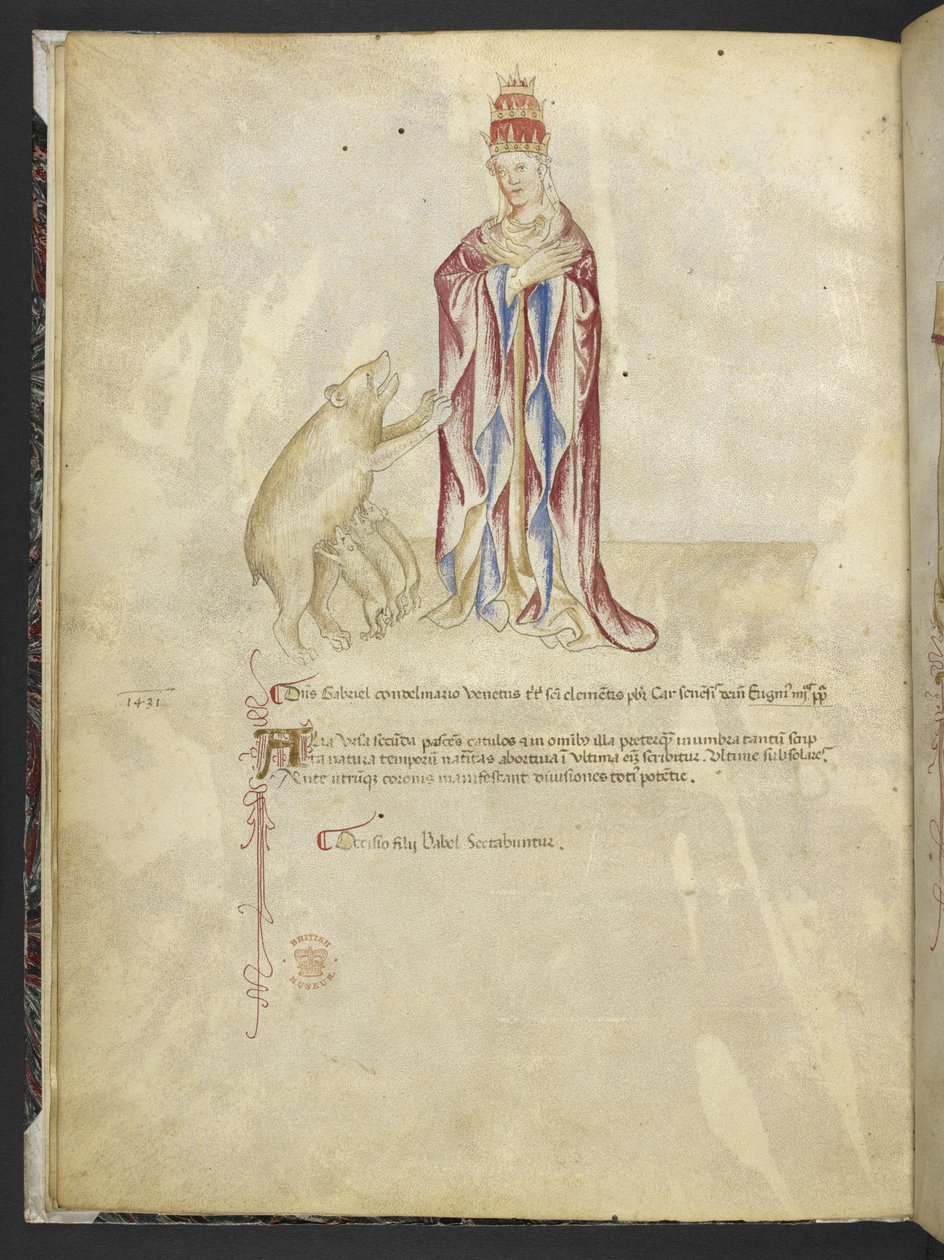 Dn̄s Gabriel condelmario Venetus tt̄ scī clemētis pb̄r Car senēs̄ dcūs Eugeni' iiij᷒ pp̄
1431
Alia Ursa secūda pascēs catulos ⁊ in omībꝰ illa preterq̄ȝ in umbra tantū scrip
ta natura temporū natītas abortiua ī Vltima eiꝰ scribitur. Vltime subsolares.
Ante utrūqȝ coronis manifestant diuisiones toti' potētie.
Occisio filij Babel Sectabuntur.
BRITISH
MUSEUM